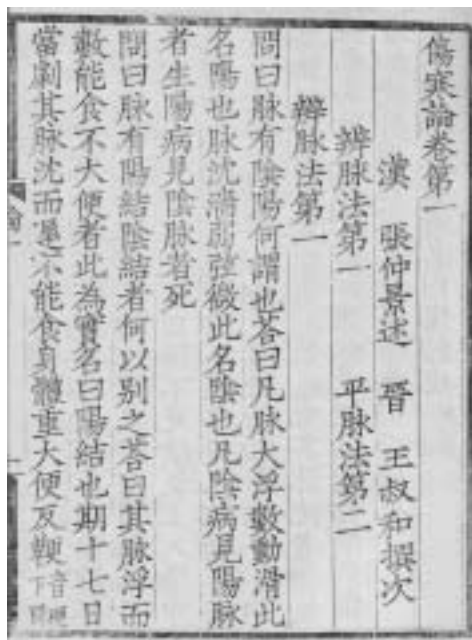 傷寒論卷第一
漢 張仲景述 晉 王叔和撰次
辨脉法第一 平脉法第二
辨脉法第一
問曰脉有陰陽何謂也荅曰凡脉大浮數動滑此
名陽也脉沈濇弱弦微此名陰也凡陰病見陽脉
者生陽病見陰脉者死
問曰脉有陽結陰結者何以别之荅曰其脉浮而
數能食不大便者此為實名曰陽結也期十七日
當劇其脉沈而遲不能食身體重大便反鞕